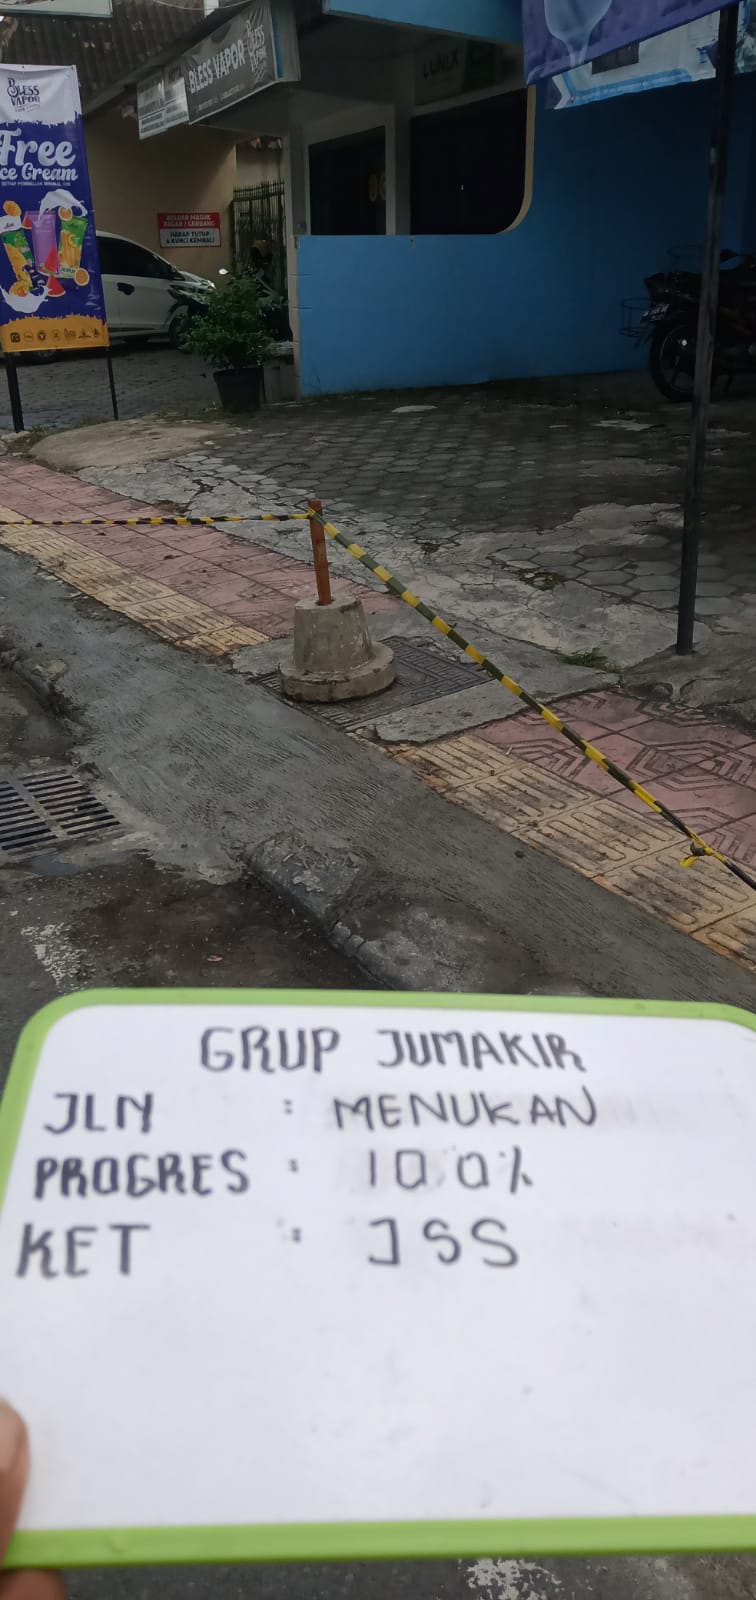 BLESS VAPOR
BLESS VAPOR
LUNIX
BLESS
VAPOR
Free
ce Cream
KELUAR MASUK
PAGAR / GERBANG
HARAP TUTUP
& KUNCI KEMBALI
GRUP JUMAKIR
JLN : MENUKAN
PROGRES : 100%
KET : JSS